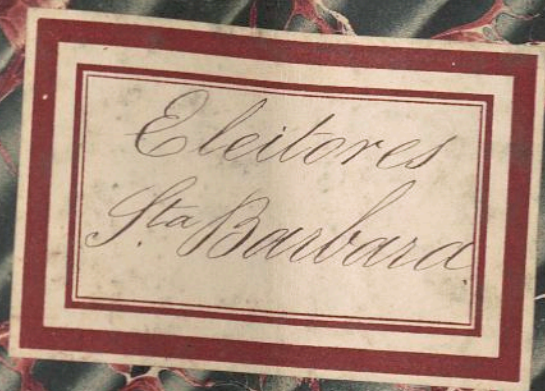 Eleitores
Sta Barbara